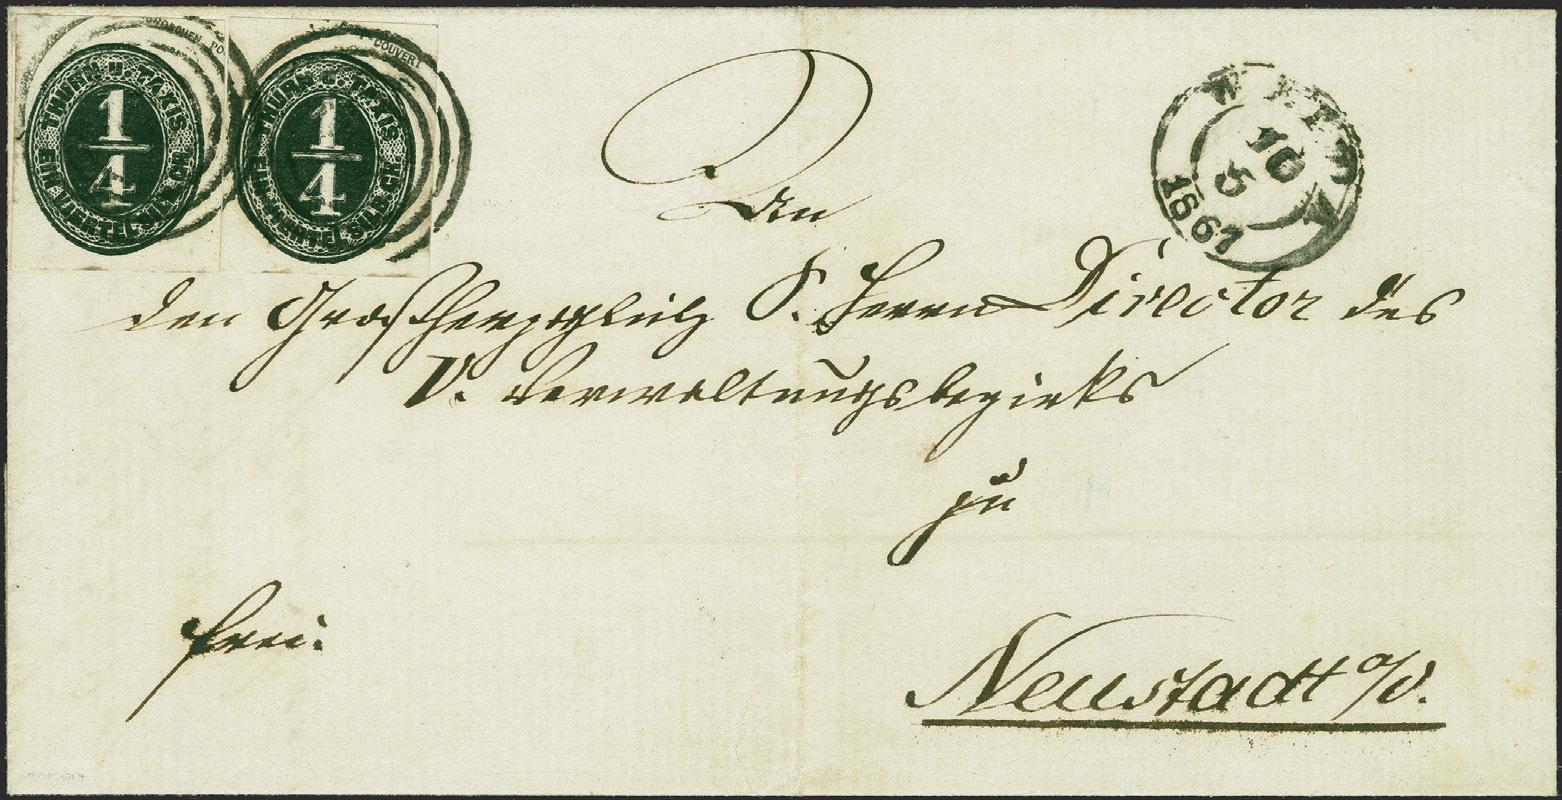 GROSCHEN PO
COUVERT
THURN U. TAXIS
1/4
EIN VIERTEL SILB. GR.
THURN U. TAXIS
1/4
EIN VIERTEL SILB. GR.
WEIDA
10
5
1867
An
den Großherzoglich S. Herrn Director des
V. Verwaltungsbezirks
zu
frei.
Neustadt a/O.